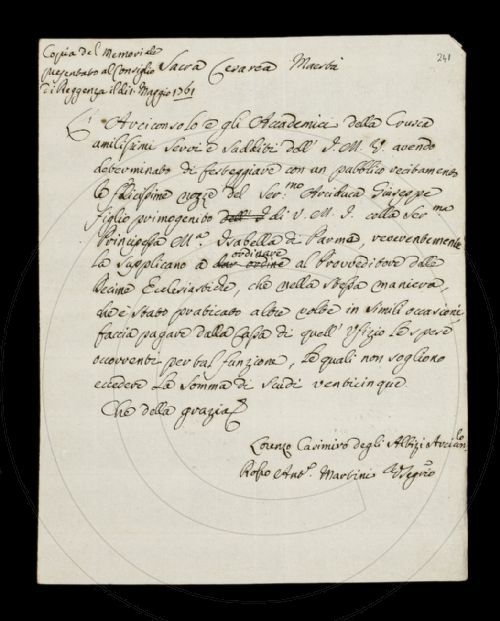 Copia del Memoriale
presentato al Consiglio
di Reggenza il dì 1. Maggio 1761
241
Sacra Cesarea Maestà
L'Arciconsolo e gli Accademici della Crusca
umilissimi Servi e Sudditi dell' I. M. V. avendo
determinato di festeggiare con un pubblico recitamento
le felicissime nozze del Ser.mo Arciduca Giuseppe
figlio primogenito dell' I di V. M. I. colla Ser.ma
Principessa M.a Isabella di Parma, reverentemente
La supplicano a dar ordine ordinare al Provveditore delle
Decime Ecclesiastiche, che nella stessa maniera,
che è stato praticato altre volte in simili occasioni
faccia pagare dalla Cassa di quell' Ufizio le spese
occorrenti per tal funzione, le quali non sogliono
eccedere la somma di Scudi venticinque.
Che della grazia
Lorenzo Casimiro degli Albizi Arcicon.lo
Rosso Ant.o Martini Segr.o